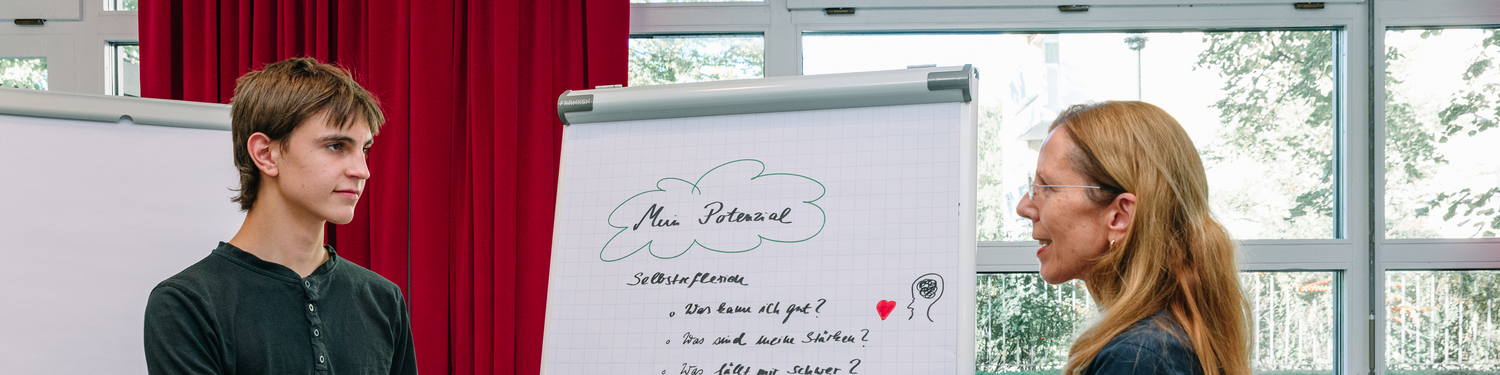 Mein Potenzial
Selbstreflexion
Was kann ich gut?
Was sind meine Stärken?
Was fällt mir schwer?